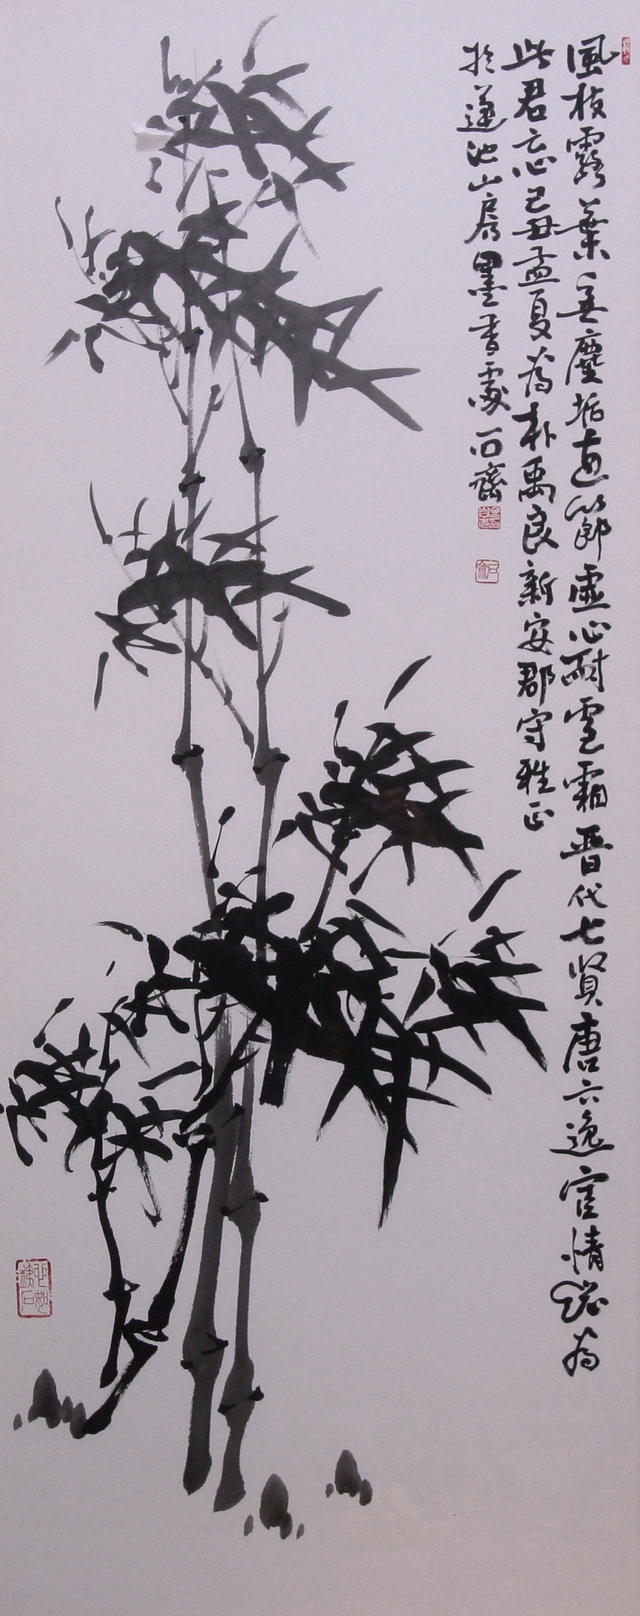 風枝露葉無塵垢直節虛心耐雪霜晉代七賢唐六逸官情總為
此君忘己丑孟夏為朴禹良新安郡守雅正
於蓮池山房墨香處 石齋